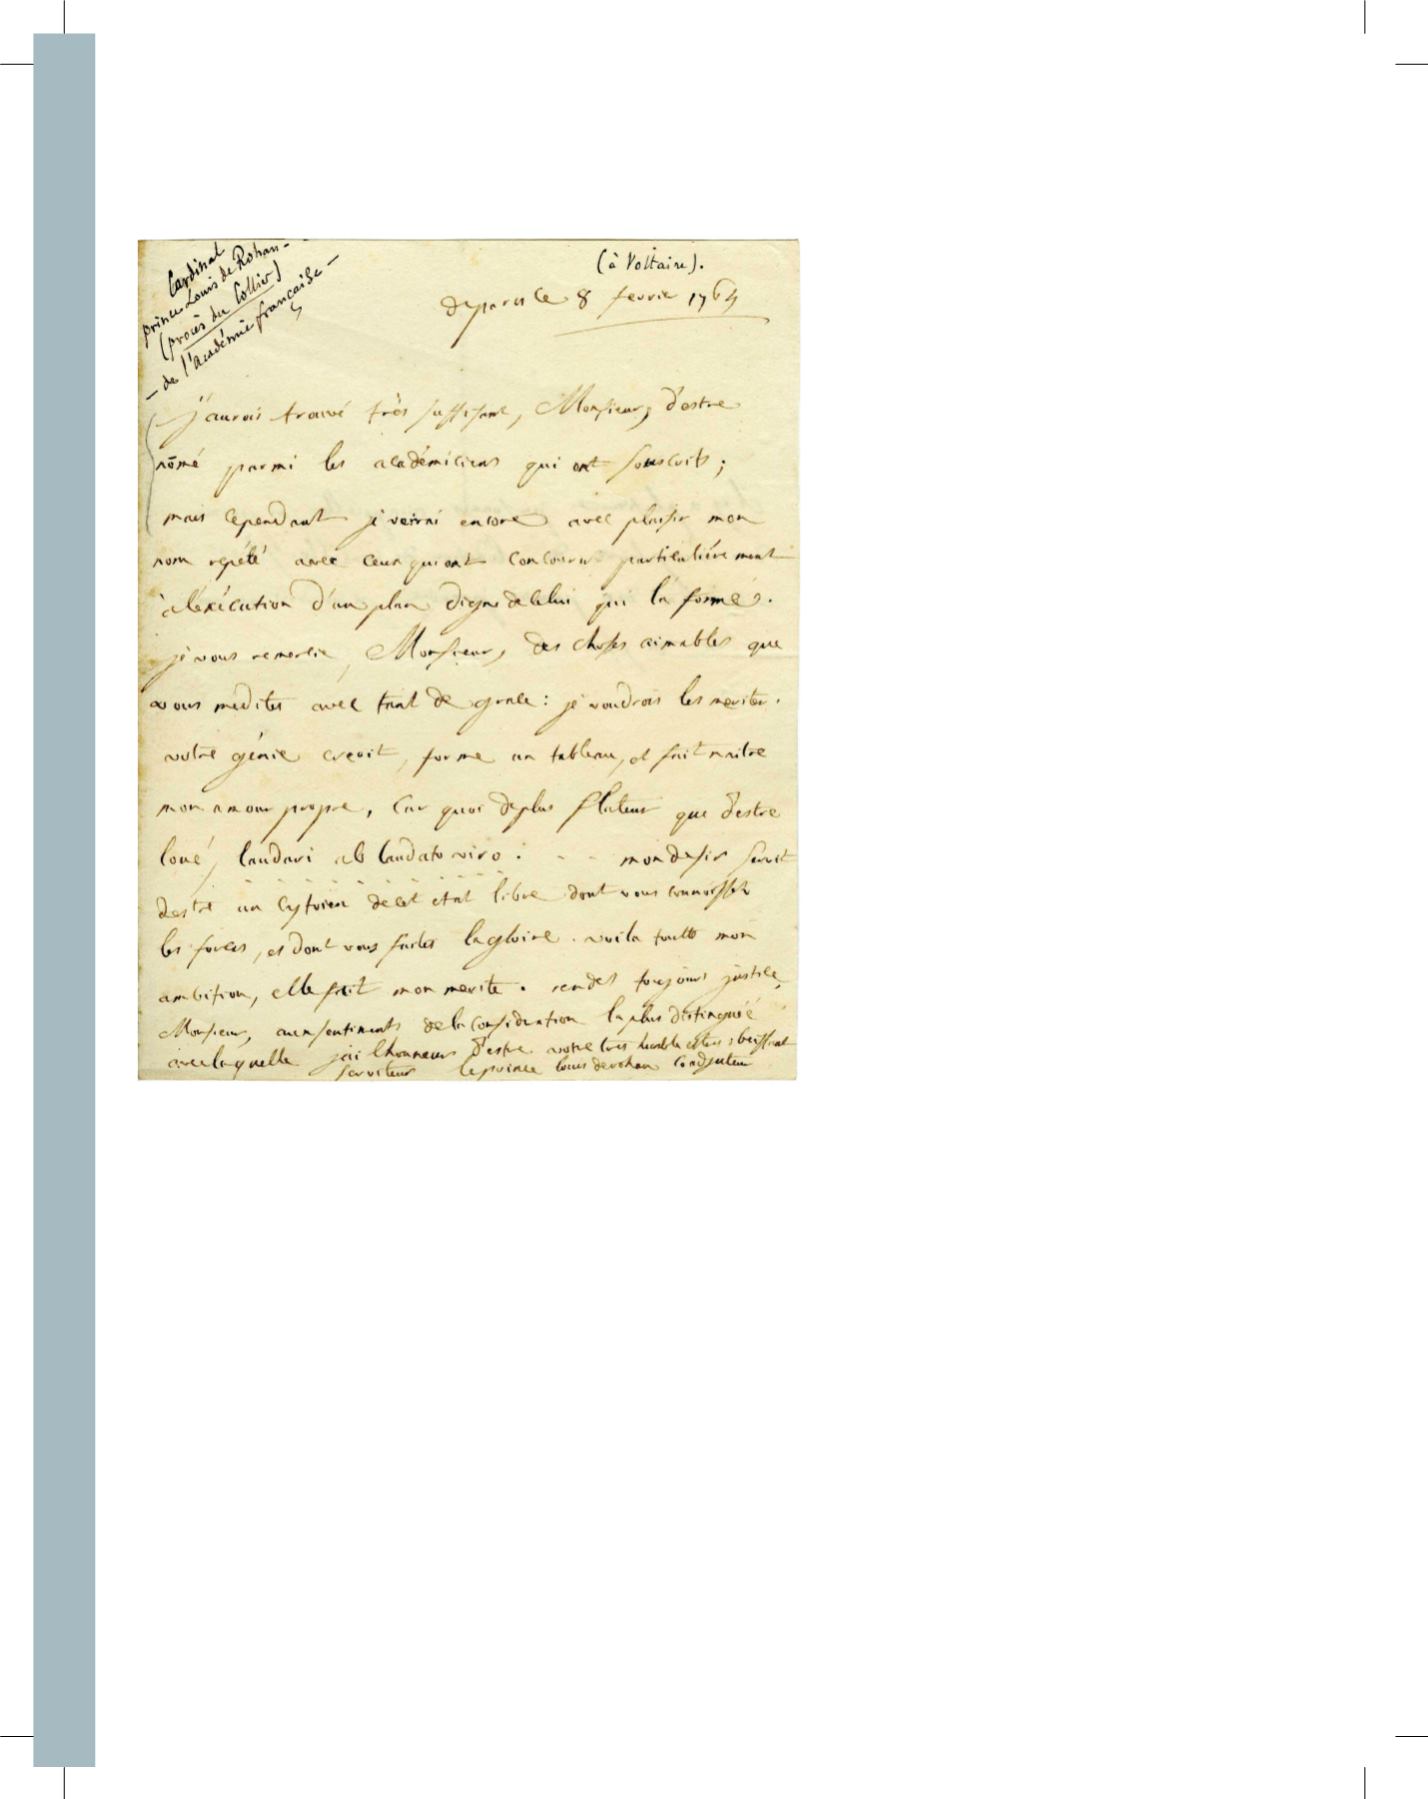 Cardinal
prince Louis de Rohan-
(procès du Collier)
- de l'académie française -
(à Voltaire).
de paris le 8 fevrier 1764
j'aurois trouvé très suffisant, Monsieur, d'estre
nōmé parmi les académiciens qui ont souscrits ;
mais cependant je verrai encore avec plaisir mon
nom repété avec ceux qui ont concouru particulièrement
à l'éxécution d'un plan digne de celui qui l'a formé.
je vous remercie, Monsieur, des choses aimables que
vous me dites avec tant de grace : je voudrois les meriter.
votre génie creoit, forme un tableau, et fait naitre
mon amour propre, car quoi de plus flateur que d'estre
loué, laudari ab laudato viro : - - mon desir seroit
destre un cytoien de cet état libre dont vous connoissez
les forces, et dont vous faites la gloire. voila toutte mon
ambition, elle fait mon merite. rendes toujours justice,
Monsieur, aux sentiments de la consideration la plus distinguée
avec laquelle j'ai l'honneur d'estre votre tres humble et tres obeissant
serviteur le prince louis de rohan coadjuteur